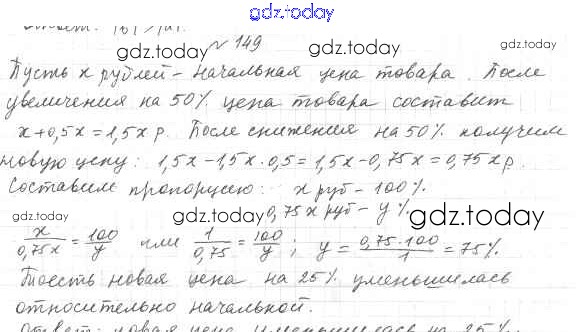 gdz.today
gdz.today № 149 gdz.today gdz.today
Пусть x рублей - начальная цена товара. После
увеличения на 50% цена товара составит
x+0,5x=1,5x р. После снижения на 50% получим
новую цену: 1,5x-1,5x·0,5=1,5x-0,75x=0,75x р.
Составим пропорцию: x руб - 100%
gdz.today gdz.today 0,75x руб - y% gdz.today
x/0,75x = 100/y или 1/0,75 = 100/y; y = 0,75·100/1 = 75%
Тоесть новая цена на 25% уменьшилась
относительно начальной.
Ответ: новая цена уменьшилась на 25%